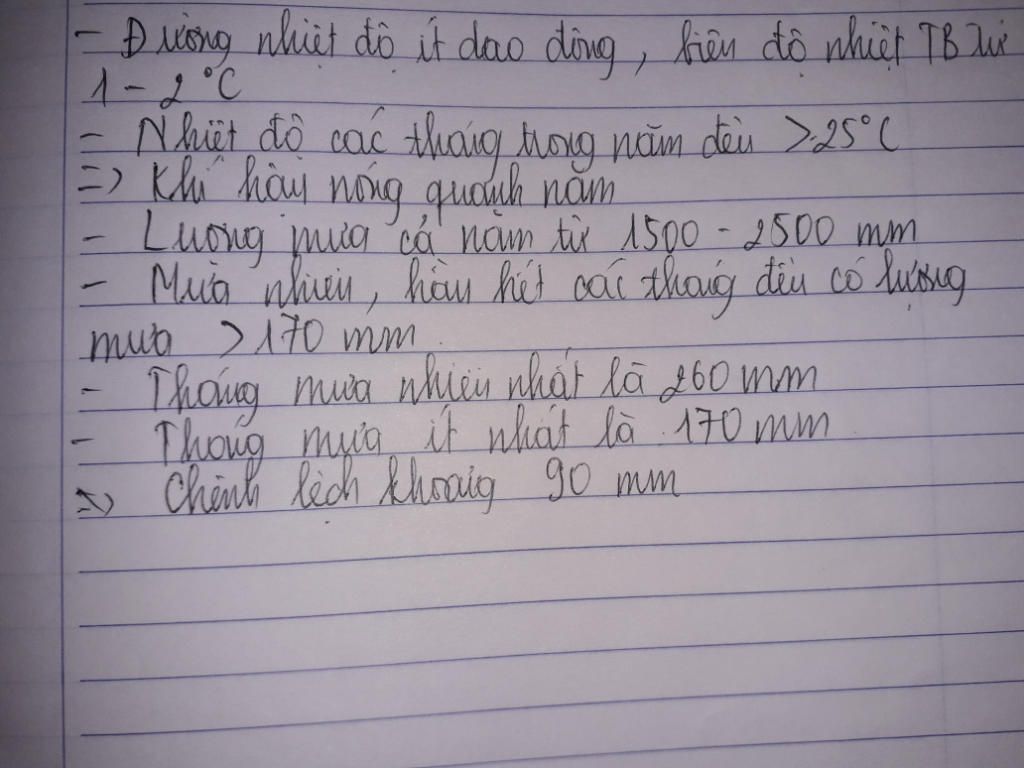 - Đường nhiệt độ ít dao động, biên độ nhiệt TB từ
1 - 2°C
- Nhiệt độ các tháng trong năm đều > 25°C
=> Khí hậu nóng quanh năm
- Lượng mưa cả năm từ 1500 - 2500 mm
- Mưa nhiều, hầu hết các tháng đều có lượng
mưa > 170 mm.
- Tháng mưa nhiều nhất là 260 mm
- Tháng mưa ít nhất là 170 mm
=> Chênh lệch khoảng 90 mm